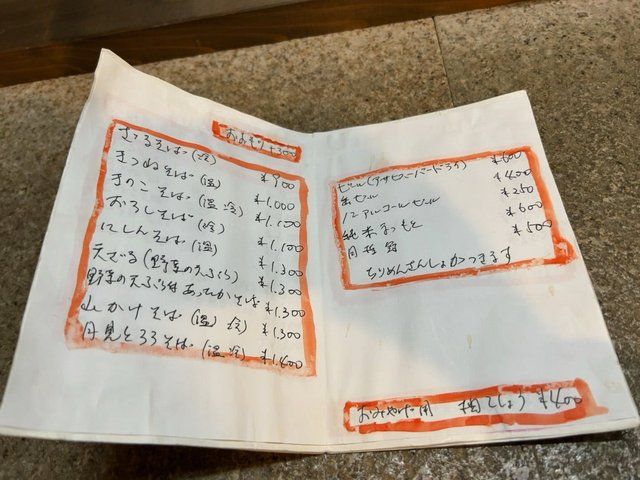 おおもり+300
ざるそば(冷) ¥900
きつねそば(温) ¥1.000
きのこそば(温 冷) ¥1.100
おろしそば(冷) ¥1.100
にしんそば(温) ¥1.300
天ざる(野菜の天ぷら) ¥1.300
野菜の天ぷら付あったかそば ¥1.300
山かけそば(温)冷) ¥1.300
月見とろろそば(温 冷) ¥1.400
ビール(アサヒスーパードライ) ¥600
缶ビール ¥400
ノンアルコールビール ¥250
純米 ¥600
月桂冠 ¥500
ちりめんさんしょがつきます
おみやげ用 ¥400